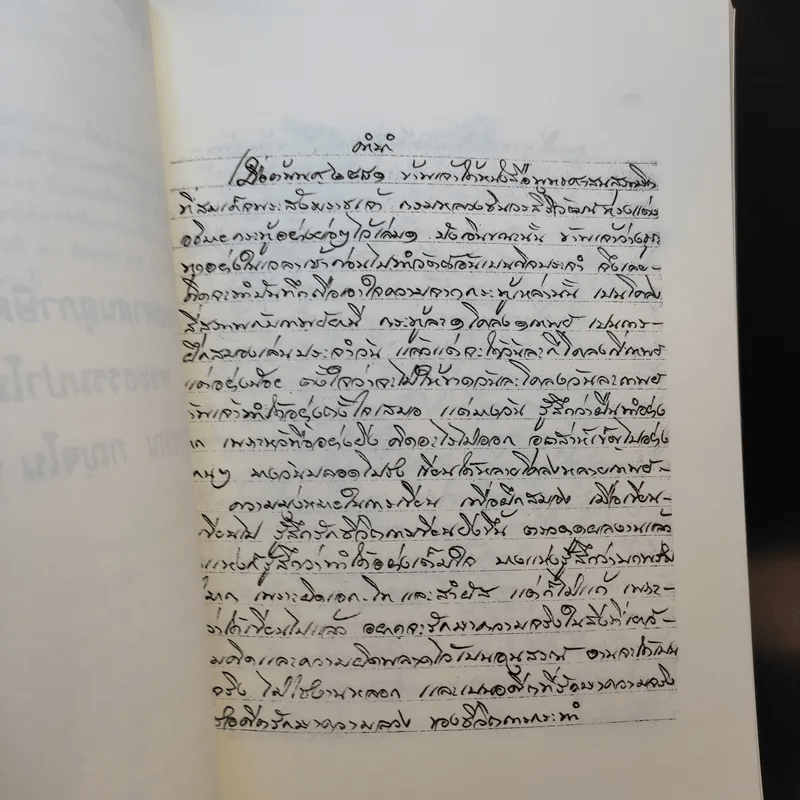 คำนำ
เมื่อต้นพศ ๒๕๕๑ ข้าพเจ้าได้หนังสือพุทธศาสนสุภาษิต
ที่สมเด็จพระสังฆราชเจ้า กรมหลวงชินวรสิริวัฒน์ ทรงแต่ง
อธิบายกระทู้อย่างย่อๆไว้เล่ม๑ บังเอิญขณะนั้น ข้าพเจ้าว่าง
ทุกอย่างในเวลาเช้าก่อนไปทำวัตรฉันเป็นกิจประจำ จึงเคย-
คิดจะทำบันทึกเพื่อเอาใจความจากกระทู้เหล่านั้น เป็นโคลง
สี่สุภาพ กระทู้ละ ๑ โคลง ๑ บท เป็นการ-
ฝึกสมองเล่นประจำวัน แล้วแต่จะได้วันละกี่โคลงกี่บท
แต่อย่างน้อย ตั้งใจว่าจะไม่ให้ขาดวันละโคลงวันละบท
ข้าพเจ้าทำได้อย่างตั้งใจเสมอ แต่บางวัน รู้สึกว่าฝืนทำอย่าง
มาก เพราะหัวทื่ออย่างยิ่ง คิดอะไรไม่ออก อุตส่าห์เข็นไปอย่าง
บางวันปลอดโปร่ง เขียนได้หลายโคลงหลายบท-
ความมุ่งหมายในการเขียน เพื่อฝึกสมอง เมื่อเขียน-
เขียนไป รู้สึกรักชีวิตการเขียนยิ่งขึ้น ตรวจดูผลงานแล้ว
บางแห่งก็รู้สึกว่าทำได้อย่างเต็มใจ บางแห่งรู้สึกว่าบกพร่อง
มาก เพราะผิดเอก-โท และสัมผัส แต่ก็ไม่แก้ เพราะ-
ว่าได้เขียนไปแล้ว อยากจะรักษาความจริงในสิ่งที่
คิดและความผิดพลาดไว้เป็นอนุสรณ์ งานจะได้เป็น
จริง ไม่ใช่งานหลอก และเป็นอดีตที่รักษาความจริง
รักษาความลวง ของชีวิตการกระทำ